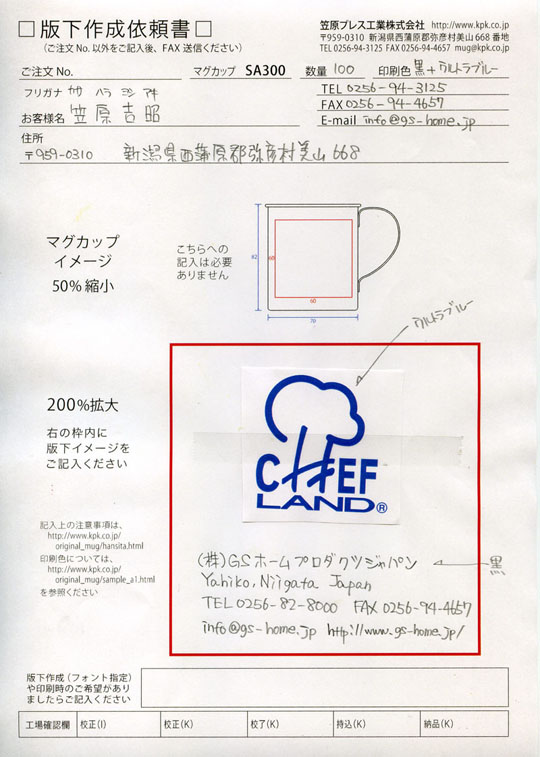 □版下作成依頼書□
（ご注文 No. 以外をご記入後、FAX 送信ください）
笠原プレス工業株式会社 http://www.kpk.co.jp
〒959-0310 新潟県西蒲原郡弥彦村美山 668 番地
TEL 0256-94-3125 FAX 0256-94-4657 mug@kpk.co.jp
ご注文 No. マグカップ SA300 数量 100 印刷色 黒+ウルトラブルー
フリガナ カサ ハラ ヨシ アキ
お客様名 笠原吉昭
TEL 0256-94-3125
FAX 0256-94-4657
E-mail info@gs-home.jp
住所
〒959-0310 新潟県西蒲原郡弥彦村美山 668
マグカップ
イメージ
50% 縮小
こちらへの
記入は必要
ありません
82
60
60
70
ウルトラブルー
200%拡大
右の枠内に
版下イメージを
ご記入ください
CHEF
LAND®
記入上の注意事項は、
http://www.kpk.co.jp/
original_mug/hansita.html
印刷色については、
http://www.kpk.co.jp/
original_mug/sample_a1.html
を参照ください
(株)GSホームプロダクツジャパン
黒
Yahiko, Niigata Japan
TEL 0256-82-8000 FAX 0256-94-4657
info@gs-home.jp http://www.gs-home.jp/
版下作成（フォント指定）
や印刷時のご希望があり
ましたらご記入ください
工場確認欄 校正(I) 校正(K) 校了(K) 持込(K) 納品(K)